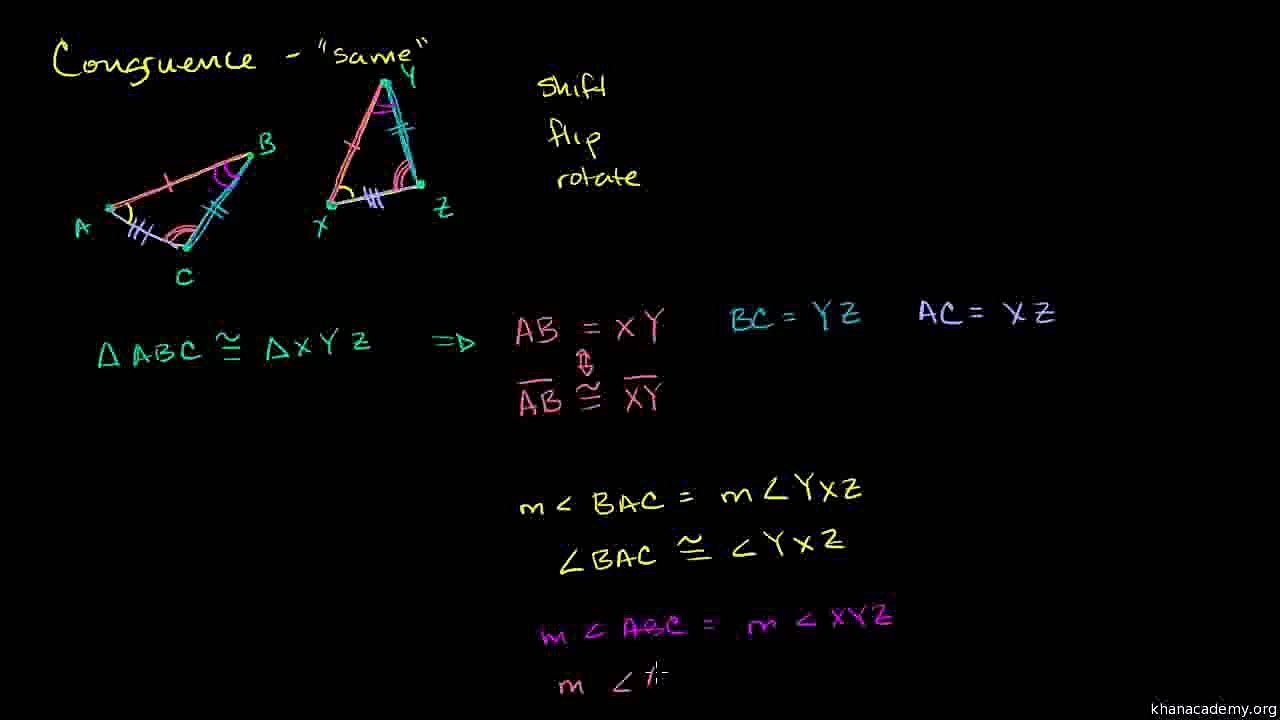 Congruence - "same"
Y
shift
flip
rotate
B
A
X
Z
C
△ABC ≅ △XYZ ⇒ AB = XY BC = YZ AC = XZ
⇕
A̅B̅ ≅ X̅Y̅
m∠BAC = m∠YXZ
∠BAC ≅ ∠YXZ
m∠ABC = m∠XYZ
m∠
khanacademy.org